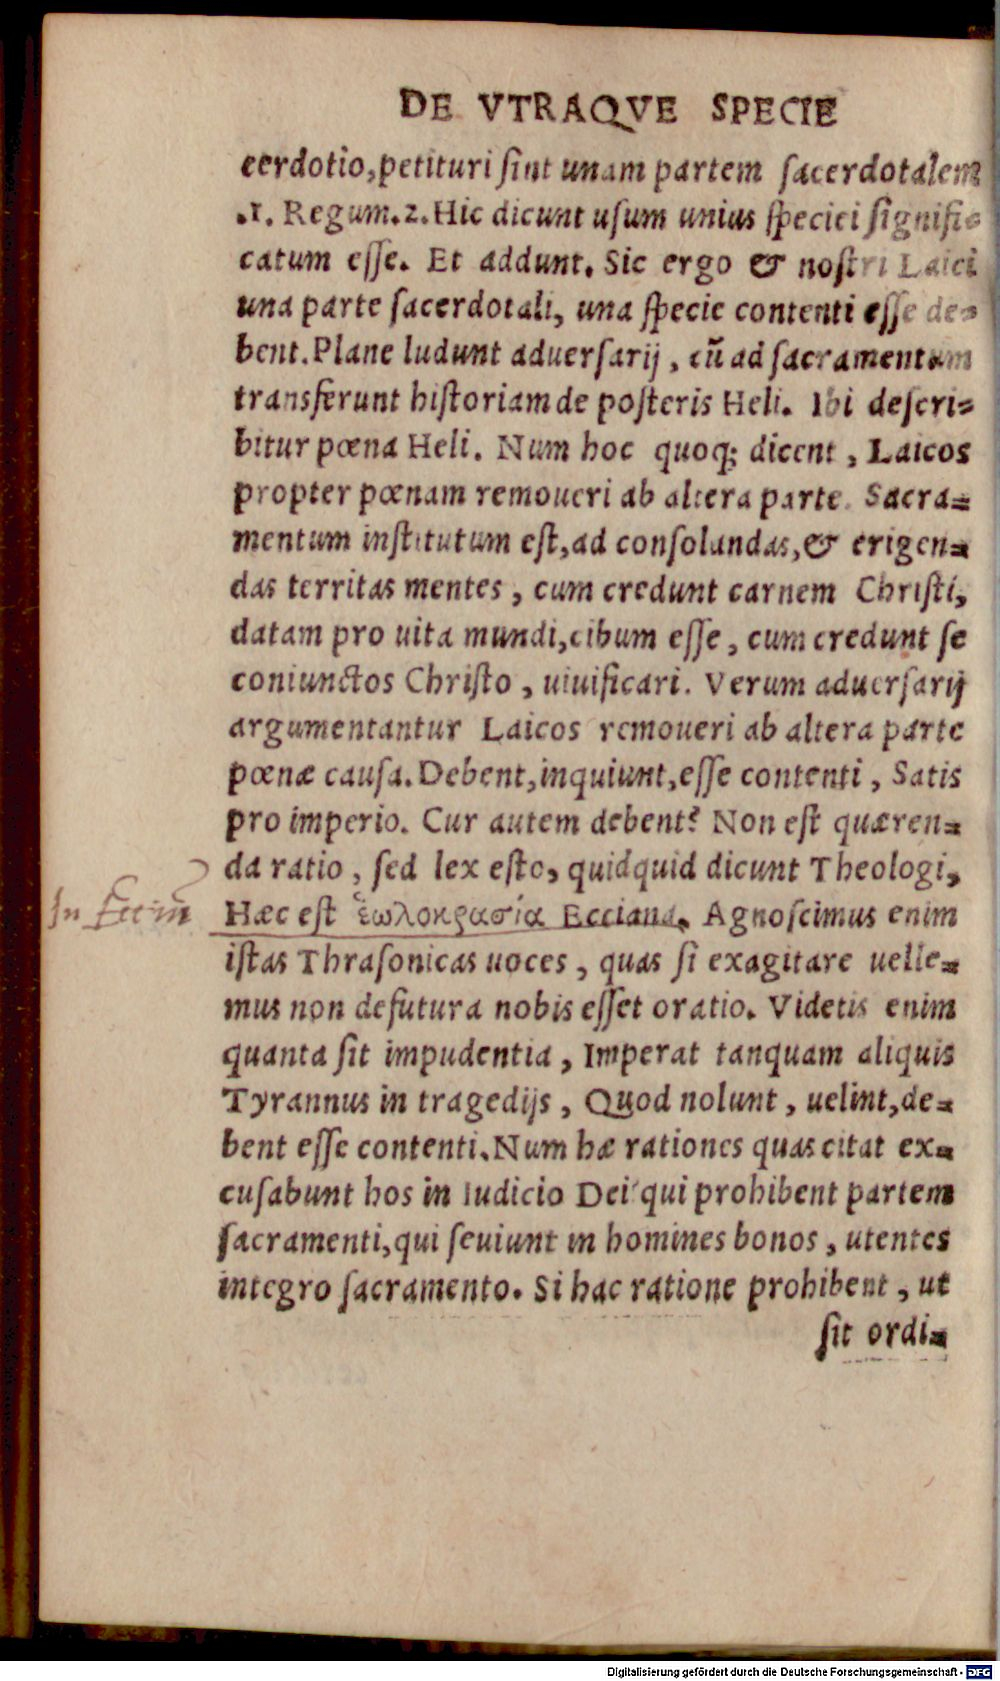 DE VTRAQVE SPECIE
cerdotio, petituri sint unam partem sacerdotalem
.1. Regum. 2. Hic dicunt usum unius speciei signifi-
catum esse. Et addunt. Sic ergo & nostri Laici
una parte sacerdotali, una specie contenti esse de-
bent. Plane ludunt aduersarij, cũ ad sacramentum
transferunt historiam de posteris Heli. Ibi descri-
bitur pœna Heli. Num hoc quoq; dicent, Laicos
propter pœnam remoueri ab altera parte. Sacra-
mentum institutum est, ad consolandas, & erigen-
das territas mentes, cum credunt carnem Christi,
datam pro uita mundi, cibum esse, cum credunt se
coniunctos Christo, uiuificari. Verum aduersarij
argumentantur Laicos remoueri ab altera parte
pœnæ causa. Debent, inquiunt, esse contenti, Satis
pro imperio. Cur autem debent? Non est quæren-
da ratio, sed lex esto, quidquid dicunt Theologi,
In Eccium
Hæc est ἑωλοκρασία Ecciana. Agnoscimus enim
istas Thrasonicas uoces, quas si exagitare uelle-
mus non defutura nobis esset oratio. Videtis enim
quanta sit impudentia, Imperat tanquam aliquis
Tyrannus in tragedijs, Quod nolunt, uelint, de-
bent esse contenti. Num hæ rationes quas citat ex-
cusabunt hos in Iudicio Dei qui prohibent partem
sacramenti, qui seuiunt in homines bonos, utentes
integro sacramento. Si hac ratione prohibent, ut
sit ordi-
Digitalisierung gefördert durch die Deutsche Forschungsgemeinschaft - DFG